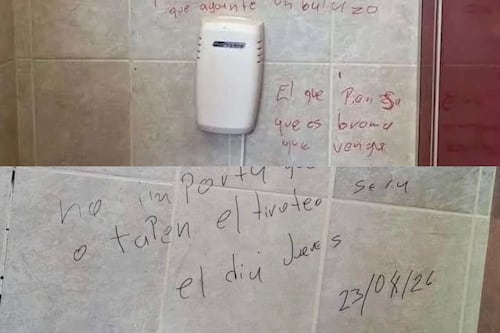 que aguante un bulazo
El que Piensa
que es broma
que venga
no importa que
seria
o tapen el tiroteo
el dia Jueves
23/04/26